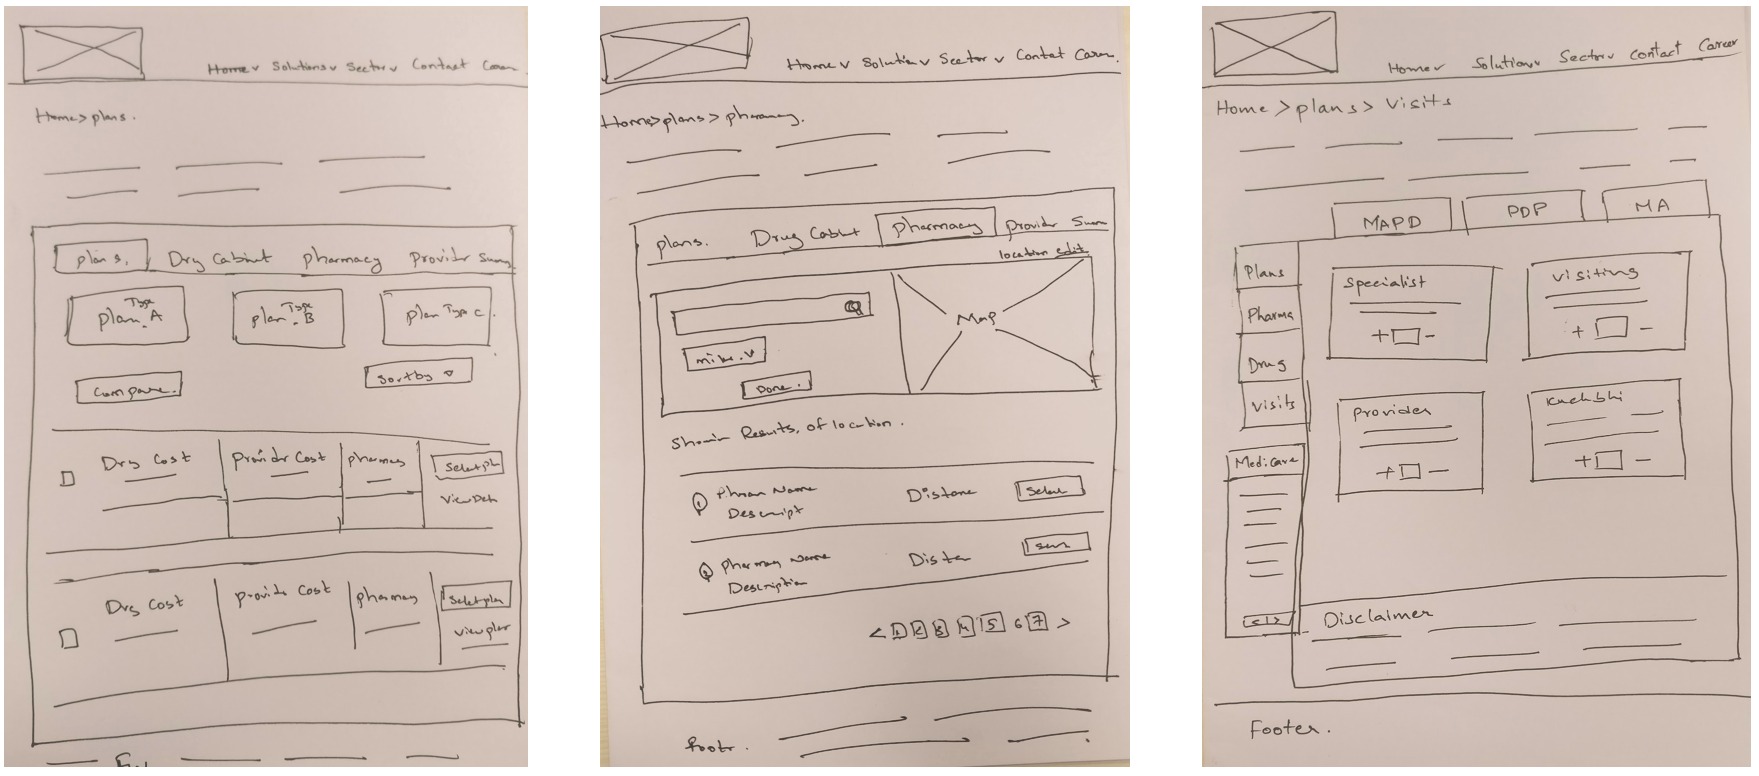 Home v Solutions v Sector v Contact Career
Home > plans.
plans. Drug Cabinet pharmacy Provider Summ
plan Type A
plan Type B
plan Type C.
Compare.
Sort by
Drug Cost Provider Cost pharmacy Select pl
View Deta
Drug Cost provider Cost pharmacy Select plan
view plan
Home v Solution v Sector v Contact Career.
Home > plans > pharmacy.
plans. Drug Cabinet pharmacy provider Summ
location edit.
Map
mike. v
Done.
Showin Results, of location.
Pharm Name Distance Select
Descript
Pharmacy Name Distan
Description
< 1 2 3 4 5 6 7 >
footr.
Home v Solution v Sector v Contact Career
Home > plans > Visits
MAPD PDP MA
Plans
Pharma
Drug
Visits
Medicare
< | >
Specialist
+ -
Visiting
+ -
Provider
+ -
Kuchbhi
+ -
Disclaimer
Footer.